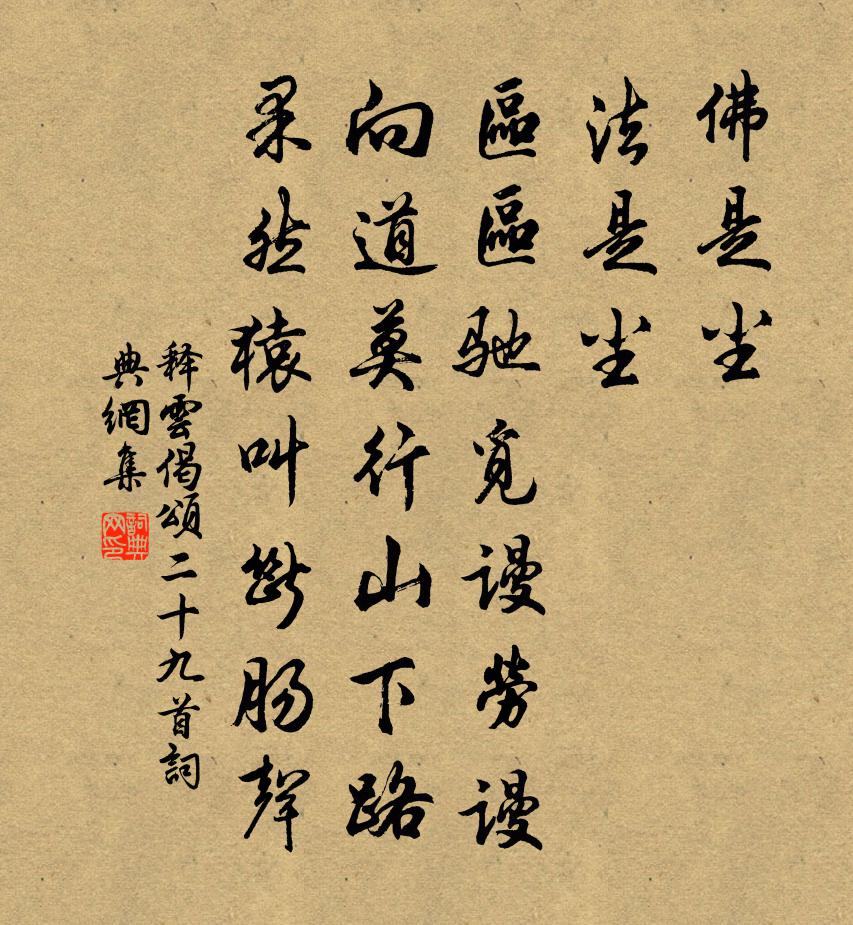 佛是尘
法是尘
區區驰覓謾勞謾
向道莫行山下路
果然猿叫斷腸聲
释雲偈頌二十九首詞
典網集
詞典
网印